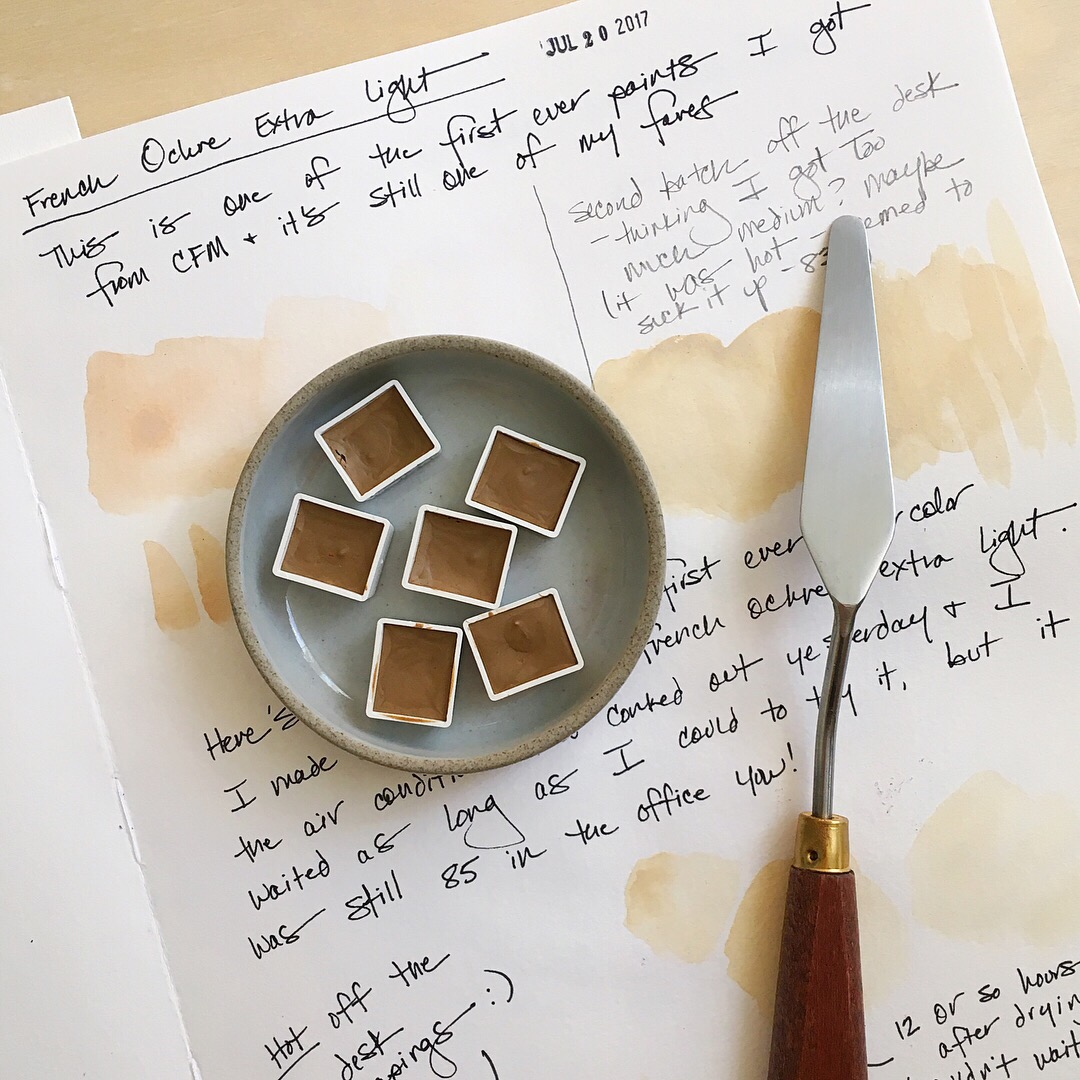 JUL 20 2017
French Ochre Extra Light
This is one of the first ever paints I got
from CFM + it's still one of my faves
second batch off the desk
- thinking I got too
much medium? maybe
(it was hot - seemed to
suck it up - 83
Here's first ever color
I made French Ochre extra light.
the air conditi conked out yesterday & I
waited as long as I could to try it, but it
was still 85 in the office yow!
Hot off the
desk
:)
12 or so hours
after dryin
dn't wait